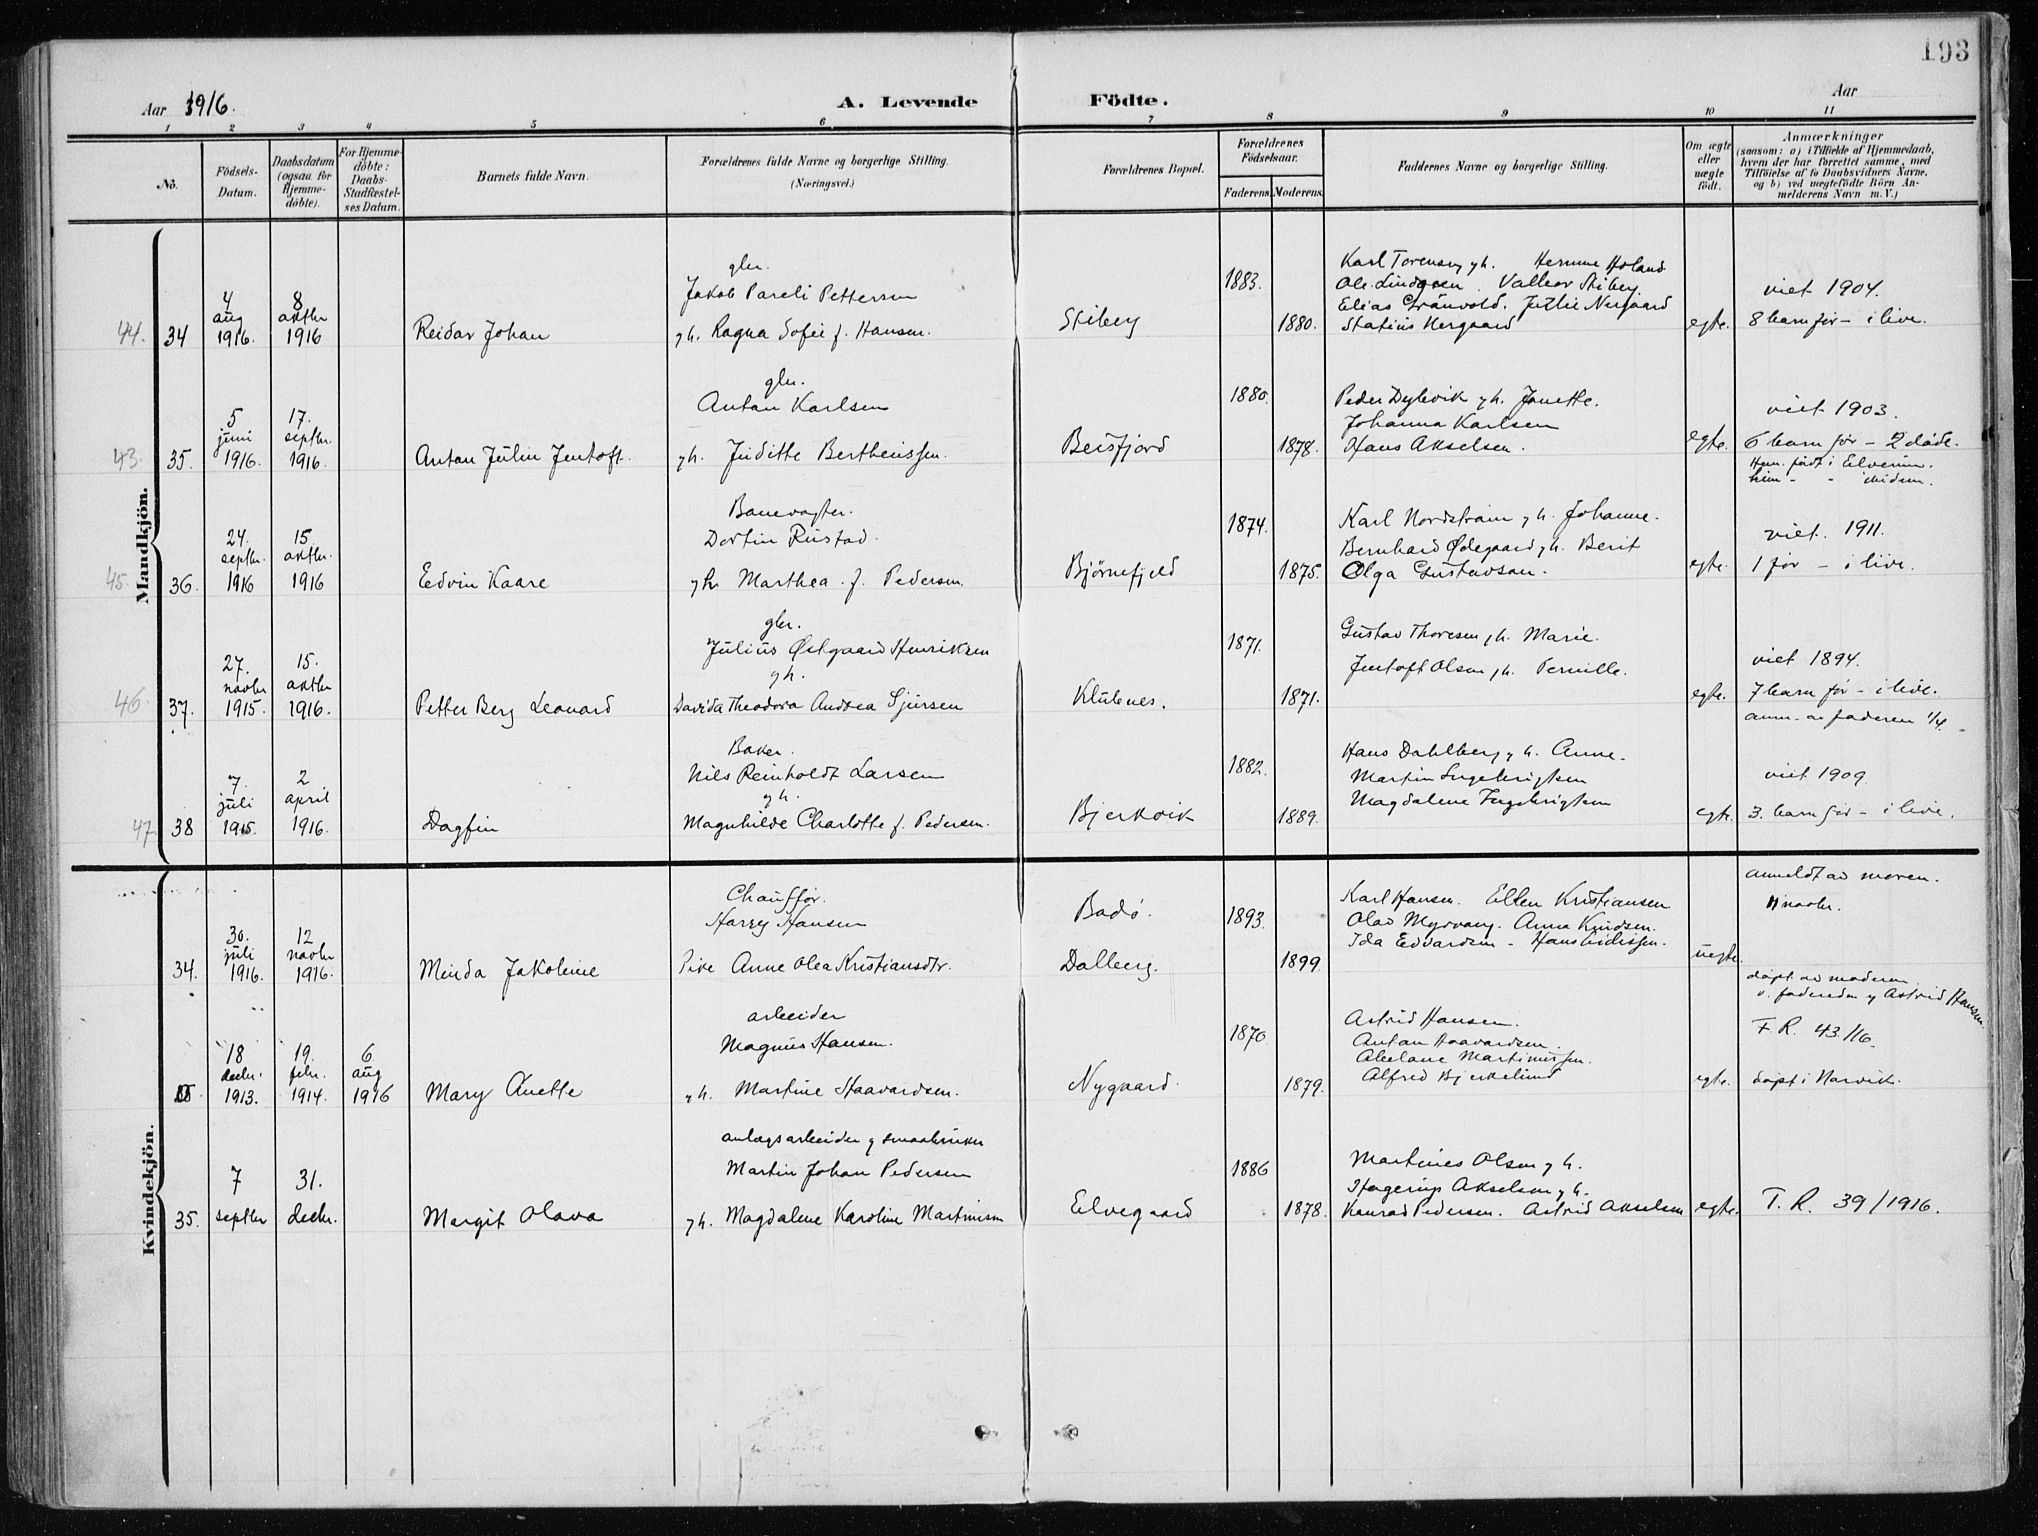 193
Aar 1916.
A. Levende Födte.
Aar
1 2 3 4 5 6 7 8 9 10 11
No.
Födsels-Datum.
Daabsdatum (ogsaa for Hjemme-döbte).
For Hjemme-döbte: Daabs-Stadfæstel-ses Datum.
Barnets fulde Navn.
Forældrenes fulde Navne og borgerlige Stilling. (Næringsvei.)
Forældrenes Bopæl.
Forældrenes Födselsaar.
Faderens. Moderens.
Faddernes Navne og borgerlige Stilling.
Om ægte eller uægte födt.
Anmærkninger
(saasom: a) i Tilfælde af Hjemmedaab,
hvem der har forrettet samme, med
Tilföielse af to Daabsvidners Navne,
og b) ved uægtefödte Börn An-
melderens Navn m. V.)
Mandkjön.
44. 34
4 aug 1916.
8 oktbr 1916
Reidar Johan
gbr.
Jakob Pareli Pettersen
gh. Ragna Sofie f. Hansen.
Stiberg
1883.
1880.
Karl Torensen gh. Hernine Holand
Ole Lindgren. Valbor Stiberg
Elias Grønvold. Jutlie Nergaard
Statius Nergaard
egte.
viet 1904.
8 barn før - i live.
43. 35.
5 juni 1916.
17. septbr. 1916.
Anton Julin Jentoft.
gbr.
Anton Karlsen
gh. Juditte Bertheussen.
Beisfjord
1880.
1878.
Peder Dybvik gh. Janette.
Johanna Karlsen
Hans Akselsen.
egte.
viet 1903.
6 barn før - 2 døde.
45. 36.
24. septbr. 1916
15 oktbr. 1916
Edvin Kaare
Banevogter.
Dortin Rustad.
gh Marthea f. Pedersen.
Bjørnefjeld
1874.
1875.
Karl Nordstrøm gh. Johanne.
Bernhard Ødegaard gh. Berit
Olga Gustavson.
egte.
Han født i Elverum.
hun - " ibidem.
viet. 1911.
1 før - i live.
46 37.
27. novbr 1915.
15. oktbr 1916.
Petter Berg Leonard
gbr.
Julius Østgaard Henriksen
gh.
Davida Theodora Andrea Sjursen
Klubnes.
1871.
1871.
Gustav Thoresen gh. Marie.
Jentoft Olsen gh. Pernille.
egte.
viet 1894.
7 barn før - i live.
anm. av faderen 1/4.
47 38
7. juli 1915.
2 april 1916.
Dagfin
Baker.
Nils Reinholdt Larsen
gh.
Magnhilde Charlotte f. Pedersen.
Bjerkvik
1882.
1889.
Hans Dahlberg gh. Anne.
Martin Ingebrigtsen
Magdalene Ingebrigtsen
egte.
viet 1909
3. barn før - i live.
Kvindekjön.
34.
30. juli 1916.
12 novbr 1916.
Minda Jakobine
Chauffør.
Harry Hansen
Pike Anne Olea Kristiansdtr.
Bodø.
Dalberg.
1893.
1899
Karl Hansen. Ellen Kristiansen
Olav Myrvang. Anna Knudsen.
Ida Edvardsen - Hans
uegte.
anmeldt av moren.
11 novbr.
18 decbr. 1913.
19. febr. 1914.
6 aug 1916
Mary Anette
arbeider
Magnus Hansen.
gh. Martine Haavardsen.
Nygaard.
1870
1879.
Astrid Hansen.
Anton Haavardsen.
Abelone Martinussen.
Alfred Bjerkelund
egte.
døpt av moderen
o. faderen g Astrid Hansen
F. R. 43/16.
døpt i Narvik.
35.
7 septbr
31. decbr.
Margit Olava
anlægsarbeider g smaabruker
Martin Johan Pedersen
gh. Magdalene Karoline Martinsen
Elvegaard
1886
1878.
Martines Olsen gh.
Hagerup Akselsen gh.
Konrad Pedersen. Astrid Akselsen
egte.
T. R. 39/1916.